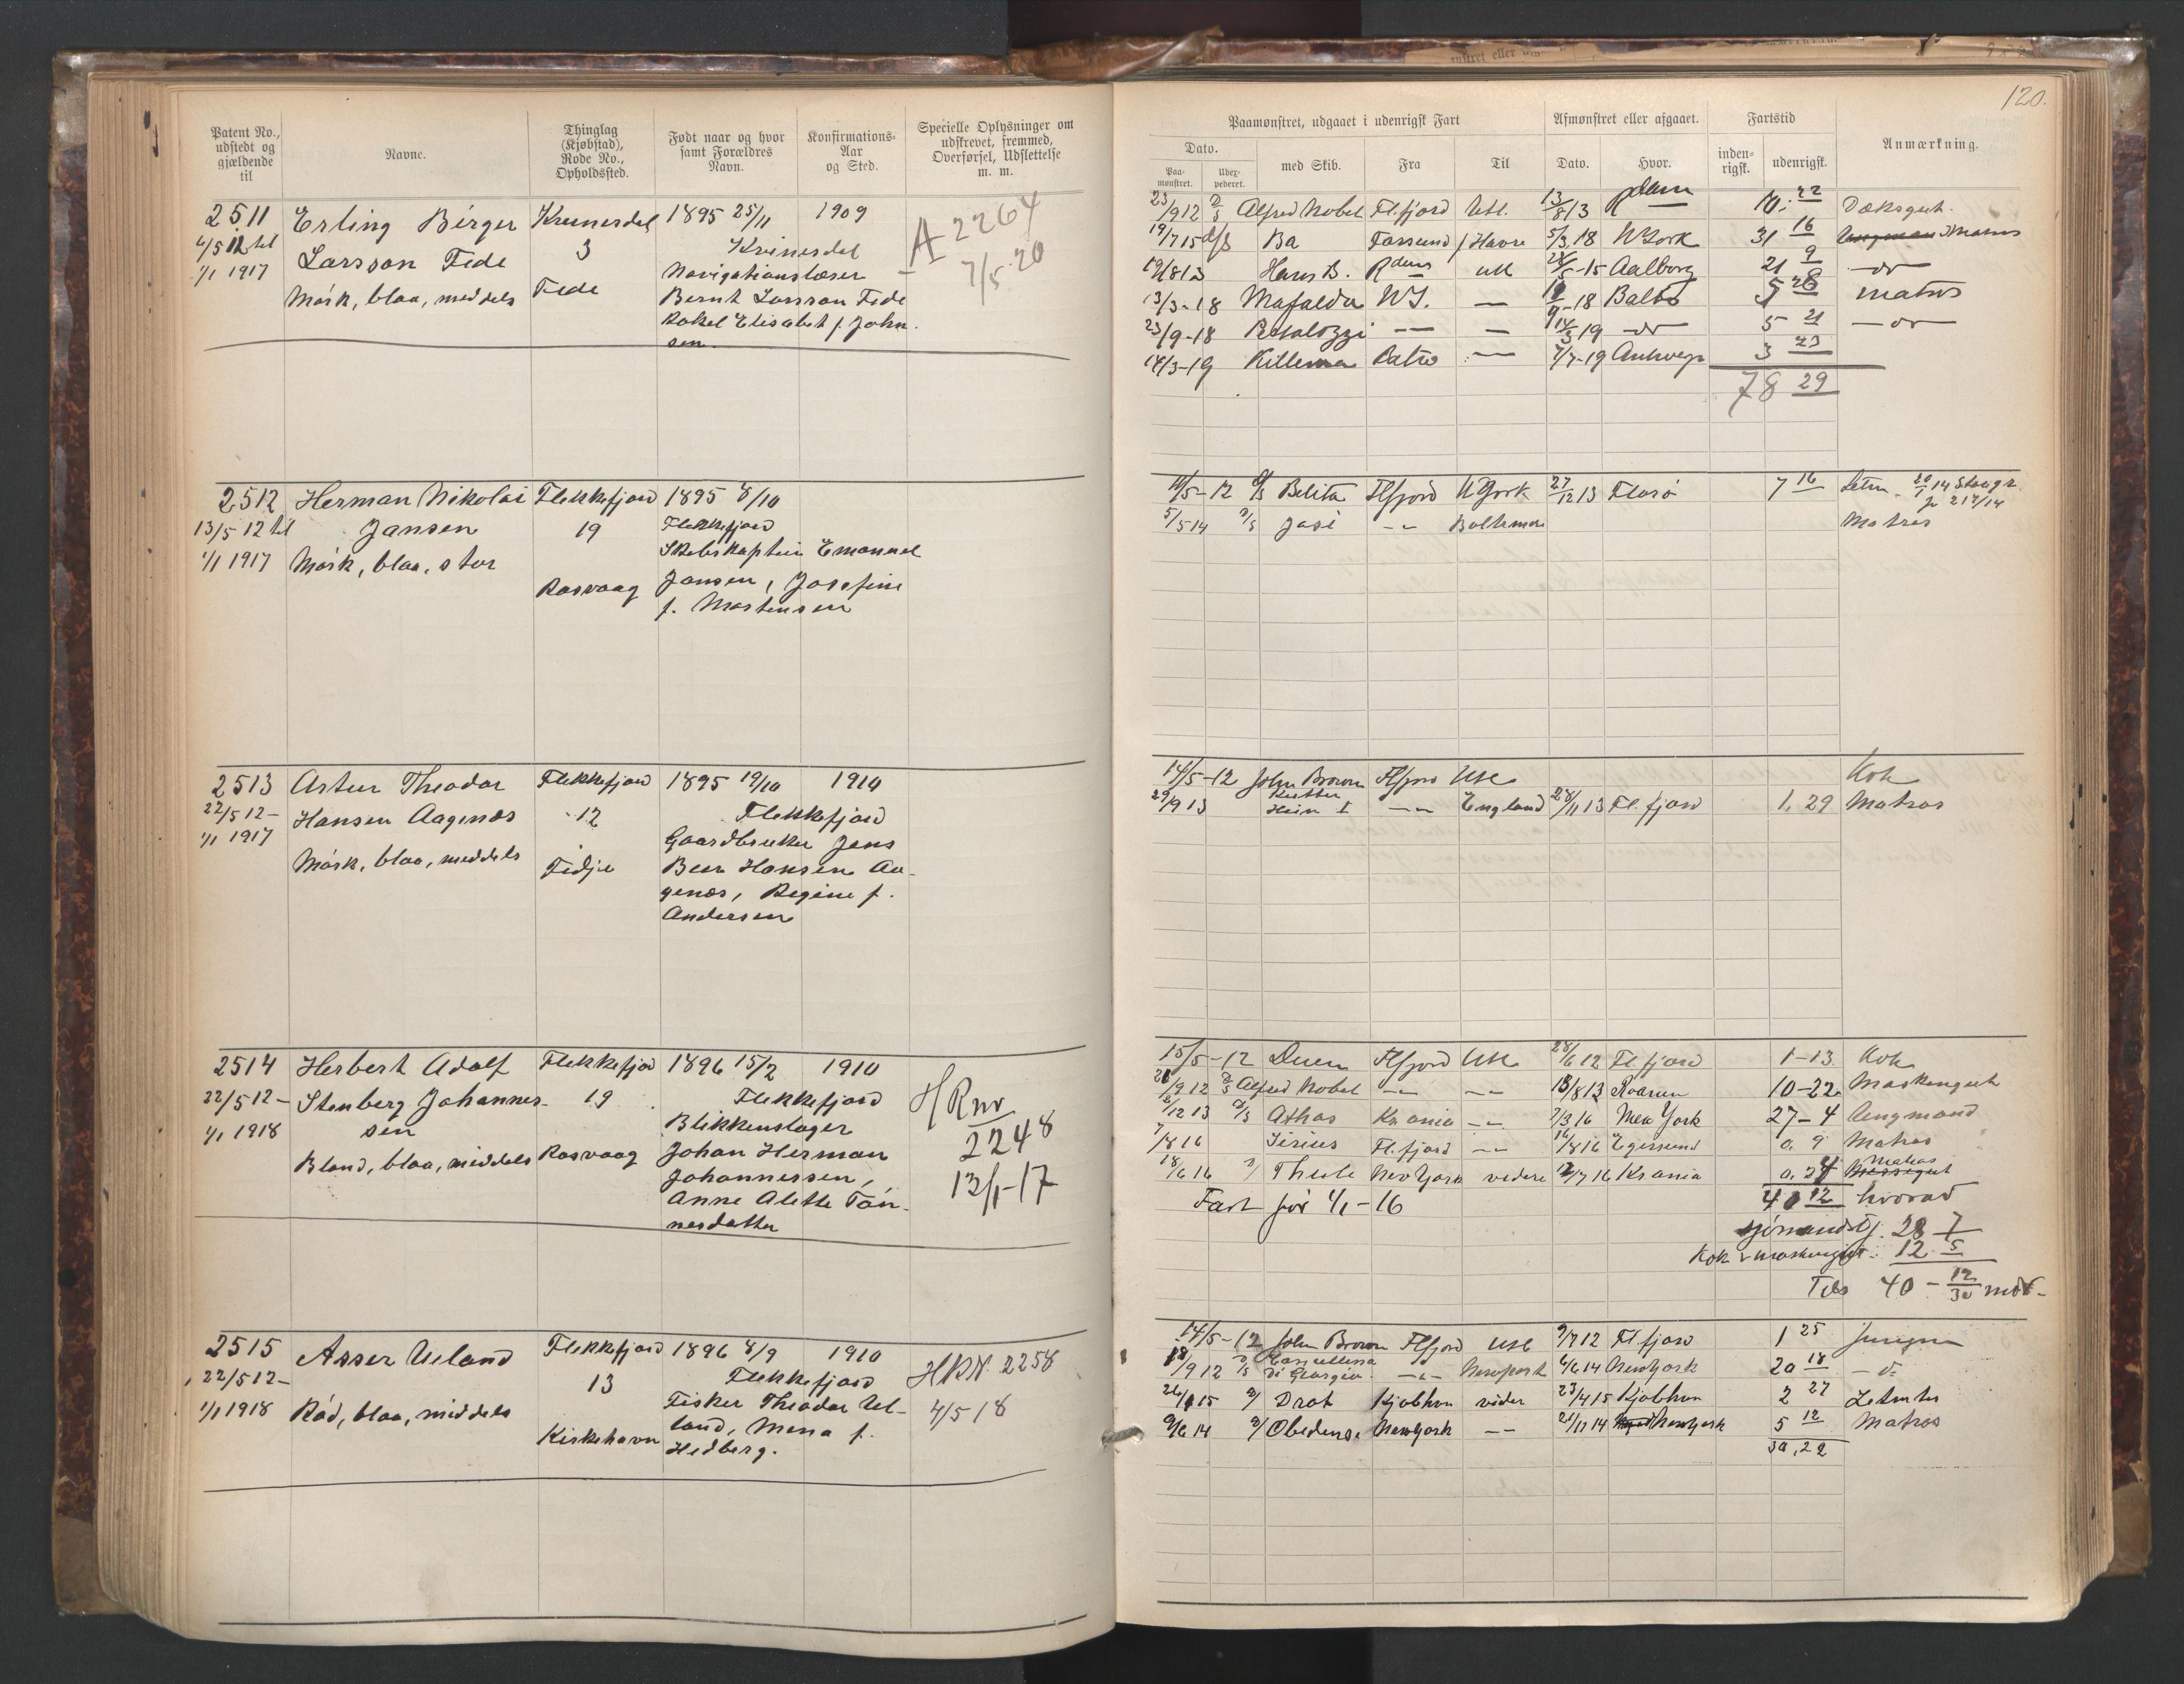 120.
Patent No., udstedt og gjældende til
Navne.
Thinglag (Kjøbstad), Rode No., Opholdssted.
Født naar og hvor samt Forældres Navn.
Konfirmations-Aar og Sted.
Specielle Oplysninger om udskrevet, fremmed, Overførsel, Udslettelse m. m.
Paamønstret, udgaaet i udenrigsk Fart
Afmønstret eller afgaaet.
Fartstid
Anmærkning.
Dato.
Paa-mønstret.
Udex-pederet.
med Skib.
Fra
Til
Dato.
Hvor.
inden-rigsk.
udenrigsk.
2511 Erling Birger 1895 25/11 1909
4/5 12 til Larsson Fede 3
1/1 1917 Navigationslæser
Mørk, blaa, meddels Fede Bernt Larsson Fede
Rakel Elisabet f. John-
sen.
A 2264
7/5 20
23/9 12 Alfred Nobel Fl.fjord Usl. 13/8 13 Rdam 10. 22 Dæksgut.
19/7 15 Ba Farsund f Havre 5/3 18 N York 31 16 Matros
19/8 13 Hans B. Rdam usl -15 Aalborg 21 9 -do-
13/3-18 Mafalda N.Y. — -18 Balto 5 28 matros
23/9-18 Pestalozzi — — 14/3 19 -do- 5 21 -do-
14/3-19 Balto — 7/7-19 Antwerp 3 23
78 29
2512 Herman Nikolai Flekkefjord 1895 8/10
13/5 12 til Jansen 19 Flekkefjord
1/1 1917 Mørk, blaa, stor Emanuel
Rasvaag Jansen, Josefine
f. Mortensen
-12 Belita Flfjord N York 27/12 13 Florø 7 16
5/5 14 Jasi -"- Baltimore Matros
2513 Artur Theodor Flekkefjord 1895 19/10 1910
22/5 12- Hansen Aagenæs 12 Flekkefjord
1/1 1917 Gaardbruker Jens
Mørk, blaa, meddels Fidje Beer Hansen Aa-
genæs, Regine f.
Andersen
14/5-12 John Brown Flfjord Usl Kok
29/9 13 Kutter Hein I -"- England 28/11 13 Fl.fjord 1, 29 Matros
2514 Herbert Adolf Flekkefjord 1896 15/2 1910
22/5 12- Stenberg Johannes- 19 Flekkefjord
1/1 1918 sen Blikkenslager
Blond, blaa, middels Rasvaag Johan Herman
Johannessen,
Anne Alette Tøn-
nesdatter
H Rnr
2248
13/1-17
15/5-12 Duen Flfjord Usl 28/6 12 Fl.fjord 1-13 Kok
Alfred Nobel -"- -"- 13/8 13 10-22 Maskingut
12 13 Athos Kr.ania -"- 7/3 16 New York 27-4 Ungmand
7/8 16 Sirius Fl.fjord -"- 16/8 16 Egersund 0. 9 Matros
18/6 16 Thule New York videre 7 16 Kr.ania Matros
Fart før 1/1-16 40 12 hvorav
sjømandstj. 28 7
Kok & maskingut: 12 5
Tils 40 - 12/30 mdr-
2515 Asser Ueland Flekkefjord 1896 8/9 1910
22/5 12- 13 Flekkefjord
1/1 1918 Rød, blaa, middels Fisker Theodor Uel-
Kirkehavn land, Mena f.
Hedberg.
H.R.N. 2258
4/5 18
14/5-12 John Brown Flfjord Usl 9/7 12 Fl.fjord 1 25 Jungm
18/9 12 Di Giorgio -"- Newport 6/6 14 New York 20 18
15 Drot Kjøbhvn vider 23/4 15 Kjøbhvn 2 27 Letmtrs
9/6 14 New York -"- 21/11 14 New York 5 12 Matros
30, 22